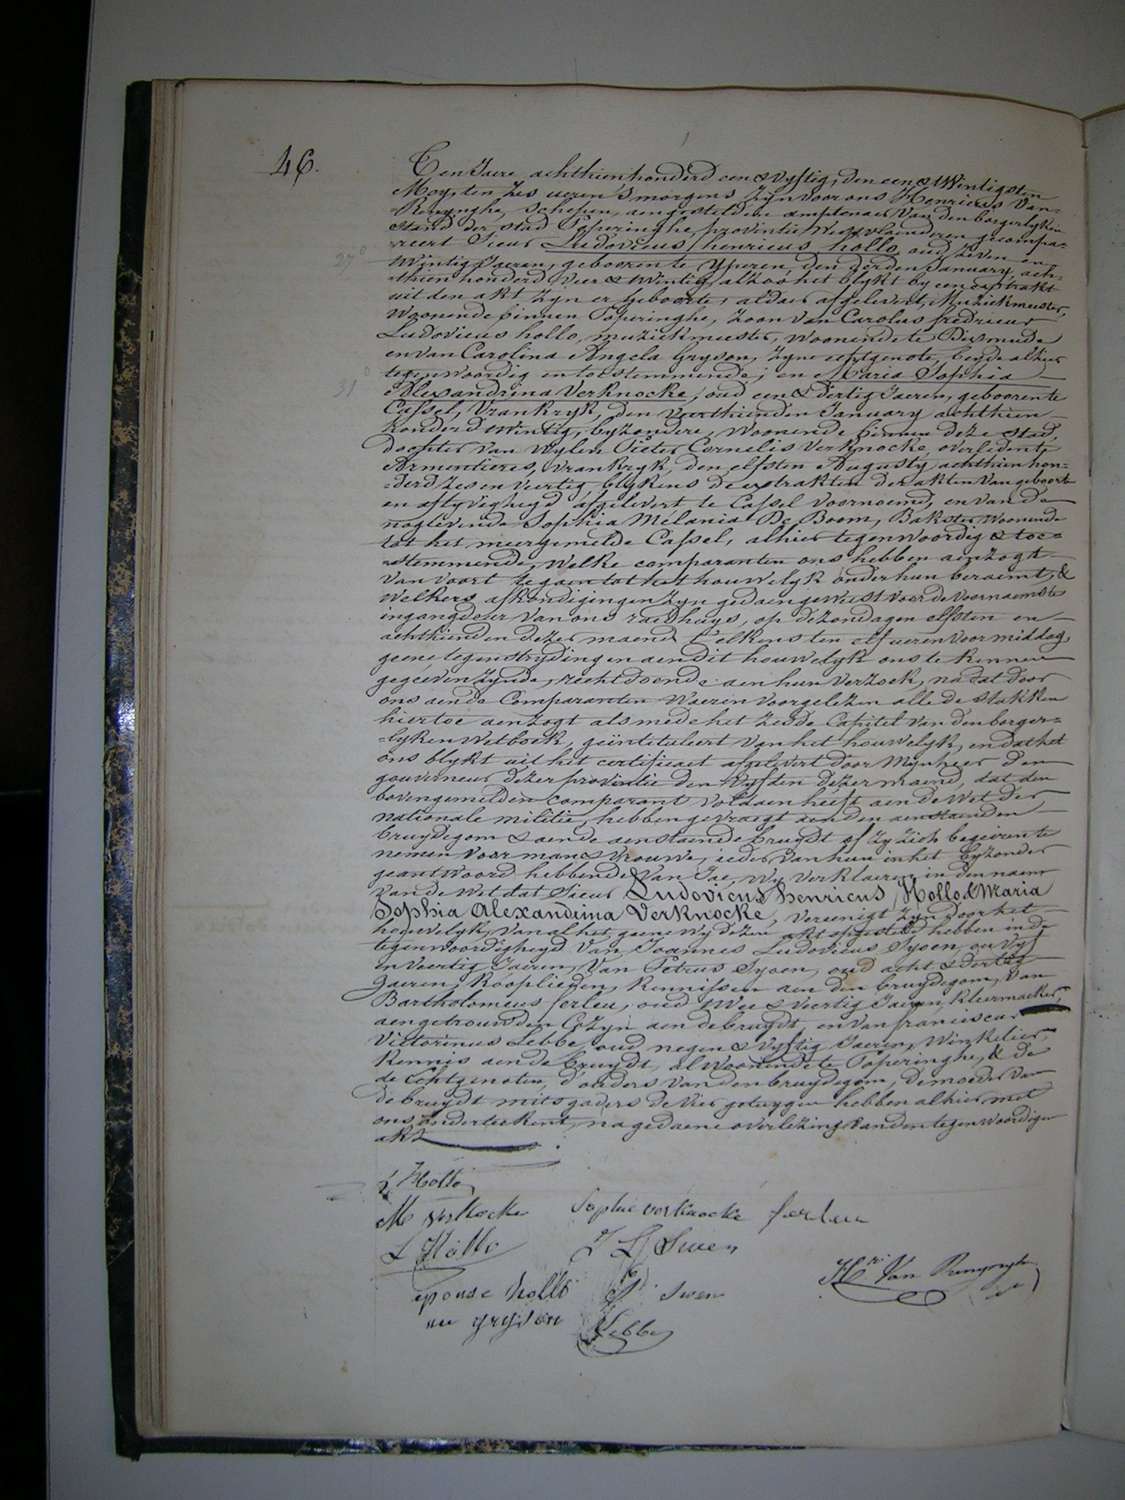 46.
Ten Jaere achthienhonderd een & vyftig, den een & twintigsten
Mey, ten zes ueren 's morgens zyn voor ons Henricus Van
Renynghe, schepen, aengestelden amptenaer van den borgerlyken
Stand der stad Poperinghe, provintie Westvlaenderen gecompa-
reert Sieur Ludovicus henricus hollo oud zeven en
27
twintig Jaeren, geboren te Yperen, den derden January ach-
thien honderd vier & twintig, alzoo het blykt by een extrakt
uit den akt zyn er geboorte, aldaer afgelevert, Muziekmeester,
woonende binnen Poperinghe, zoon van Carolus fredricus
Ludovicus hollo, muziekmeester, woonende te Dixmude
en van Carolina Angela Gryson, zyne echtgenote, beyde alhier
tegenwoordig en toestemmende; en Maria Sophia
31
Alexandrina Verknocke, oud een & dertig Jaeren, geboren te
Cassel, Vrankryk, den veerthienden January achthien
honderd twintig, byzondere, woonende binnen deze stad
dochter van wylen Pieter Cornelis Verknocke, overleden te
Armentieres, Vrankryk, den elfsten Augusty achthien hon-
derd zes en veertig blykens de extrakten der akten van geboorte
en aflyvigheyd afgelevert te Cassel voornoemd, en van de
naglevende Sophia Mélania De Boom, Bakster woonende
tot het meergemelde Cassel, alhier tegenwoordig & toe-
stemmende, welke comparanten ons hebben aenzogt
van voort te gaen tot het houwelyk onder hun beraemt, &
welkers afkondigingen zyn gedaen geweest voor de voornaemste
ingangdeur van ons raedhuys, op de zondagen elfsten en
achthienden dezer maend telkens ten elf ueren voormiddag,
geene tegenstrydingen aen dit houwelyk ons te kennen
gegeven zynde, recht doende aen hun verzoek, na dat door
ons aen de Comparanten waeren voorgelezen alle de stukken
hiertoe aenzogt als mede het zesde Capitel van den borger-
lyken Wetboek, geïntituleert van het houwelyk, en dat het
ons blykt uit het certificaet afgelevert door Mynheer den
gouverneur dezer provintie den vyfden dezer maend, dat den
bovengemelden comparant voldaen heeft aen de wet der
nationale militie, hebben gevraegt aen den aenstaenden
bruydegom & aen de aenstaende bruydt of zy zich begeiren te
nemen voor man & vrouwe, ieder van hun in het byzonder
geantwoord hebbende van Jae, wy verklaeren in den naem
van de wet dat Sieur Ludovicus henricus Hollo & Maria
Sophia Alexandrina Verknocke, vereenigt zyn door het
houwelyk, van al het geene wy dezen akt opgesteld hebben in de
tegenwoordigheyd van Joannes Ludovicus Syoen, oud vyf
en veertig Jaeren, van Petrus Syoen, oud acht & dertig
Jaeren, Koopliegen, kennissen aen den bruydegom, van
Bartholomeus ferleu, oud twee & veertig Jaeren, kleermaeker,
aengetrouwden Cozyn aen de bruydt, en van franciscus
Victorinus Lebbe, oud negen & vyftig Jaeren, Winkelier,
kennis aen de bruydt, al woonende te Poperinghe, & de
de Echtgenoten, d'ouders van den bruydegom, de moeder van
de bruydt mitsgaders de vier getuygen hebben alhier met
ons onderteekent, na gedaene overlezing van den tegenwoordigen
akt
L Hollo
M verknocke Sophie verknocke ferleu
L Hollo J L Swen
Hri Van Renynghe
epouse hollo P Swen
nee gryson Lebbe